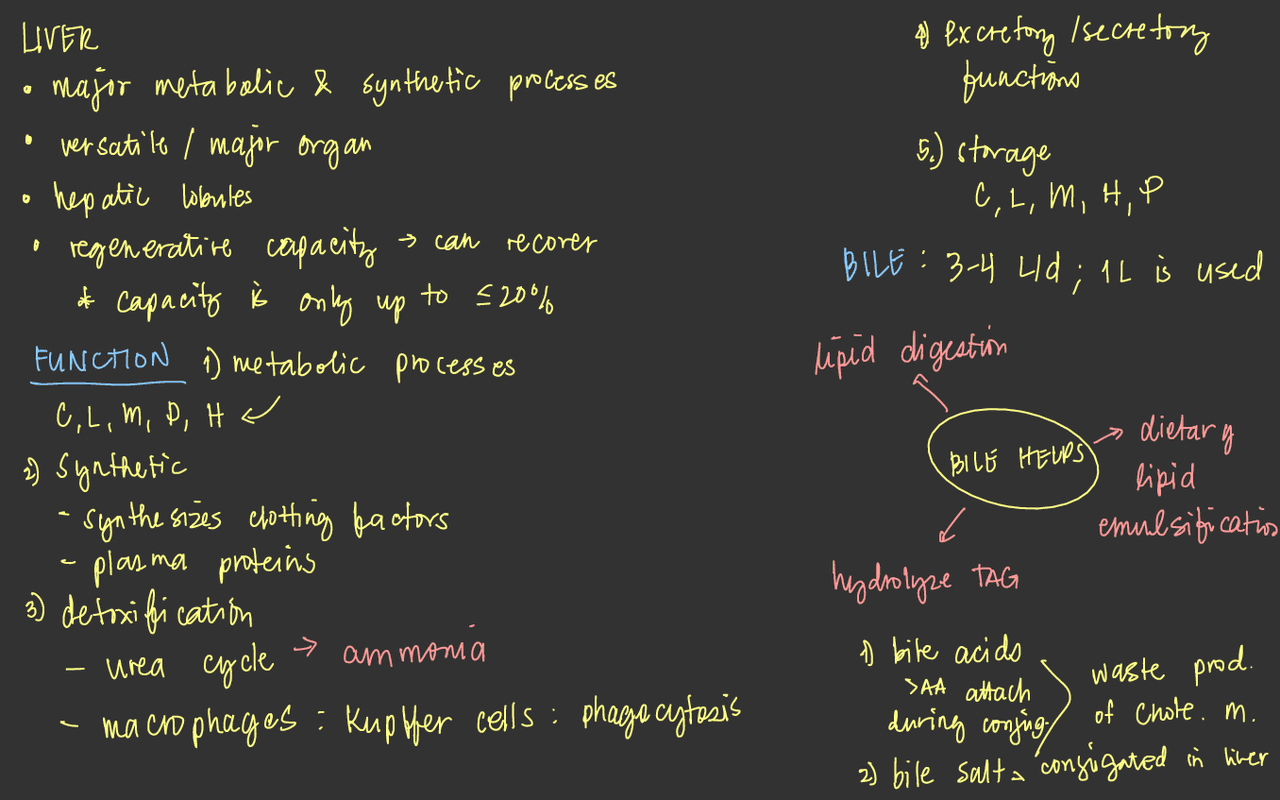 LIVER
• major metabolic & synthetic processes
• versatile / major organ
• hepatic lobules
• regenerative capacity → can recover
* capacity is only up to ≤20%
FUNCTION 1) metabolic processes
C, L, M, P, H ✓
2) Synthetic
- synthesizes clotting factors
- plasma proteins
3) detoxification
- urea cycle → ammonia
- macrophages : Kupffer cells : phagocytosis
4) excretory / secretory
functions
5.) storage
C, L, M, H, P
BILE : 3-4 L/d ; 1L is used
lipid digestion
BILE HELPS
→ dietary
lipid
emulsification
hydrolyze TAG
1) bile acids
>AA attach
during conjug.
waste prod.
of Chole. m.
2) bile salts conjugated in liver